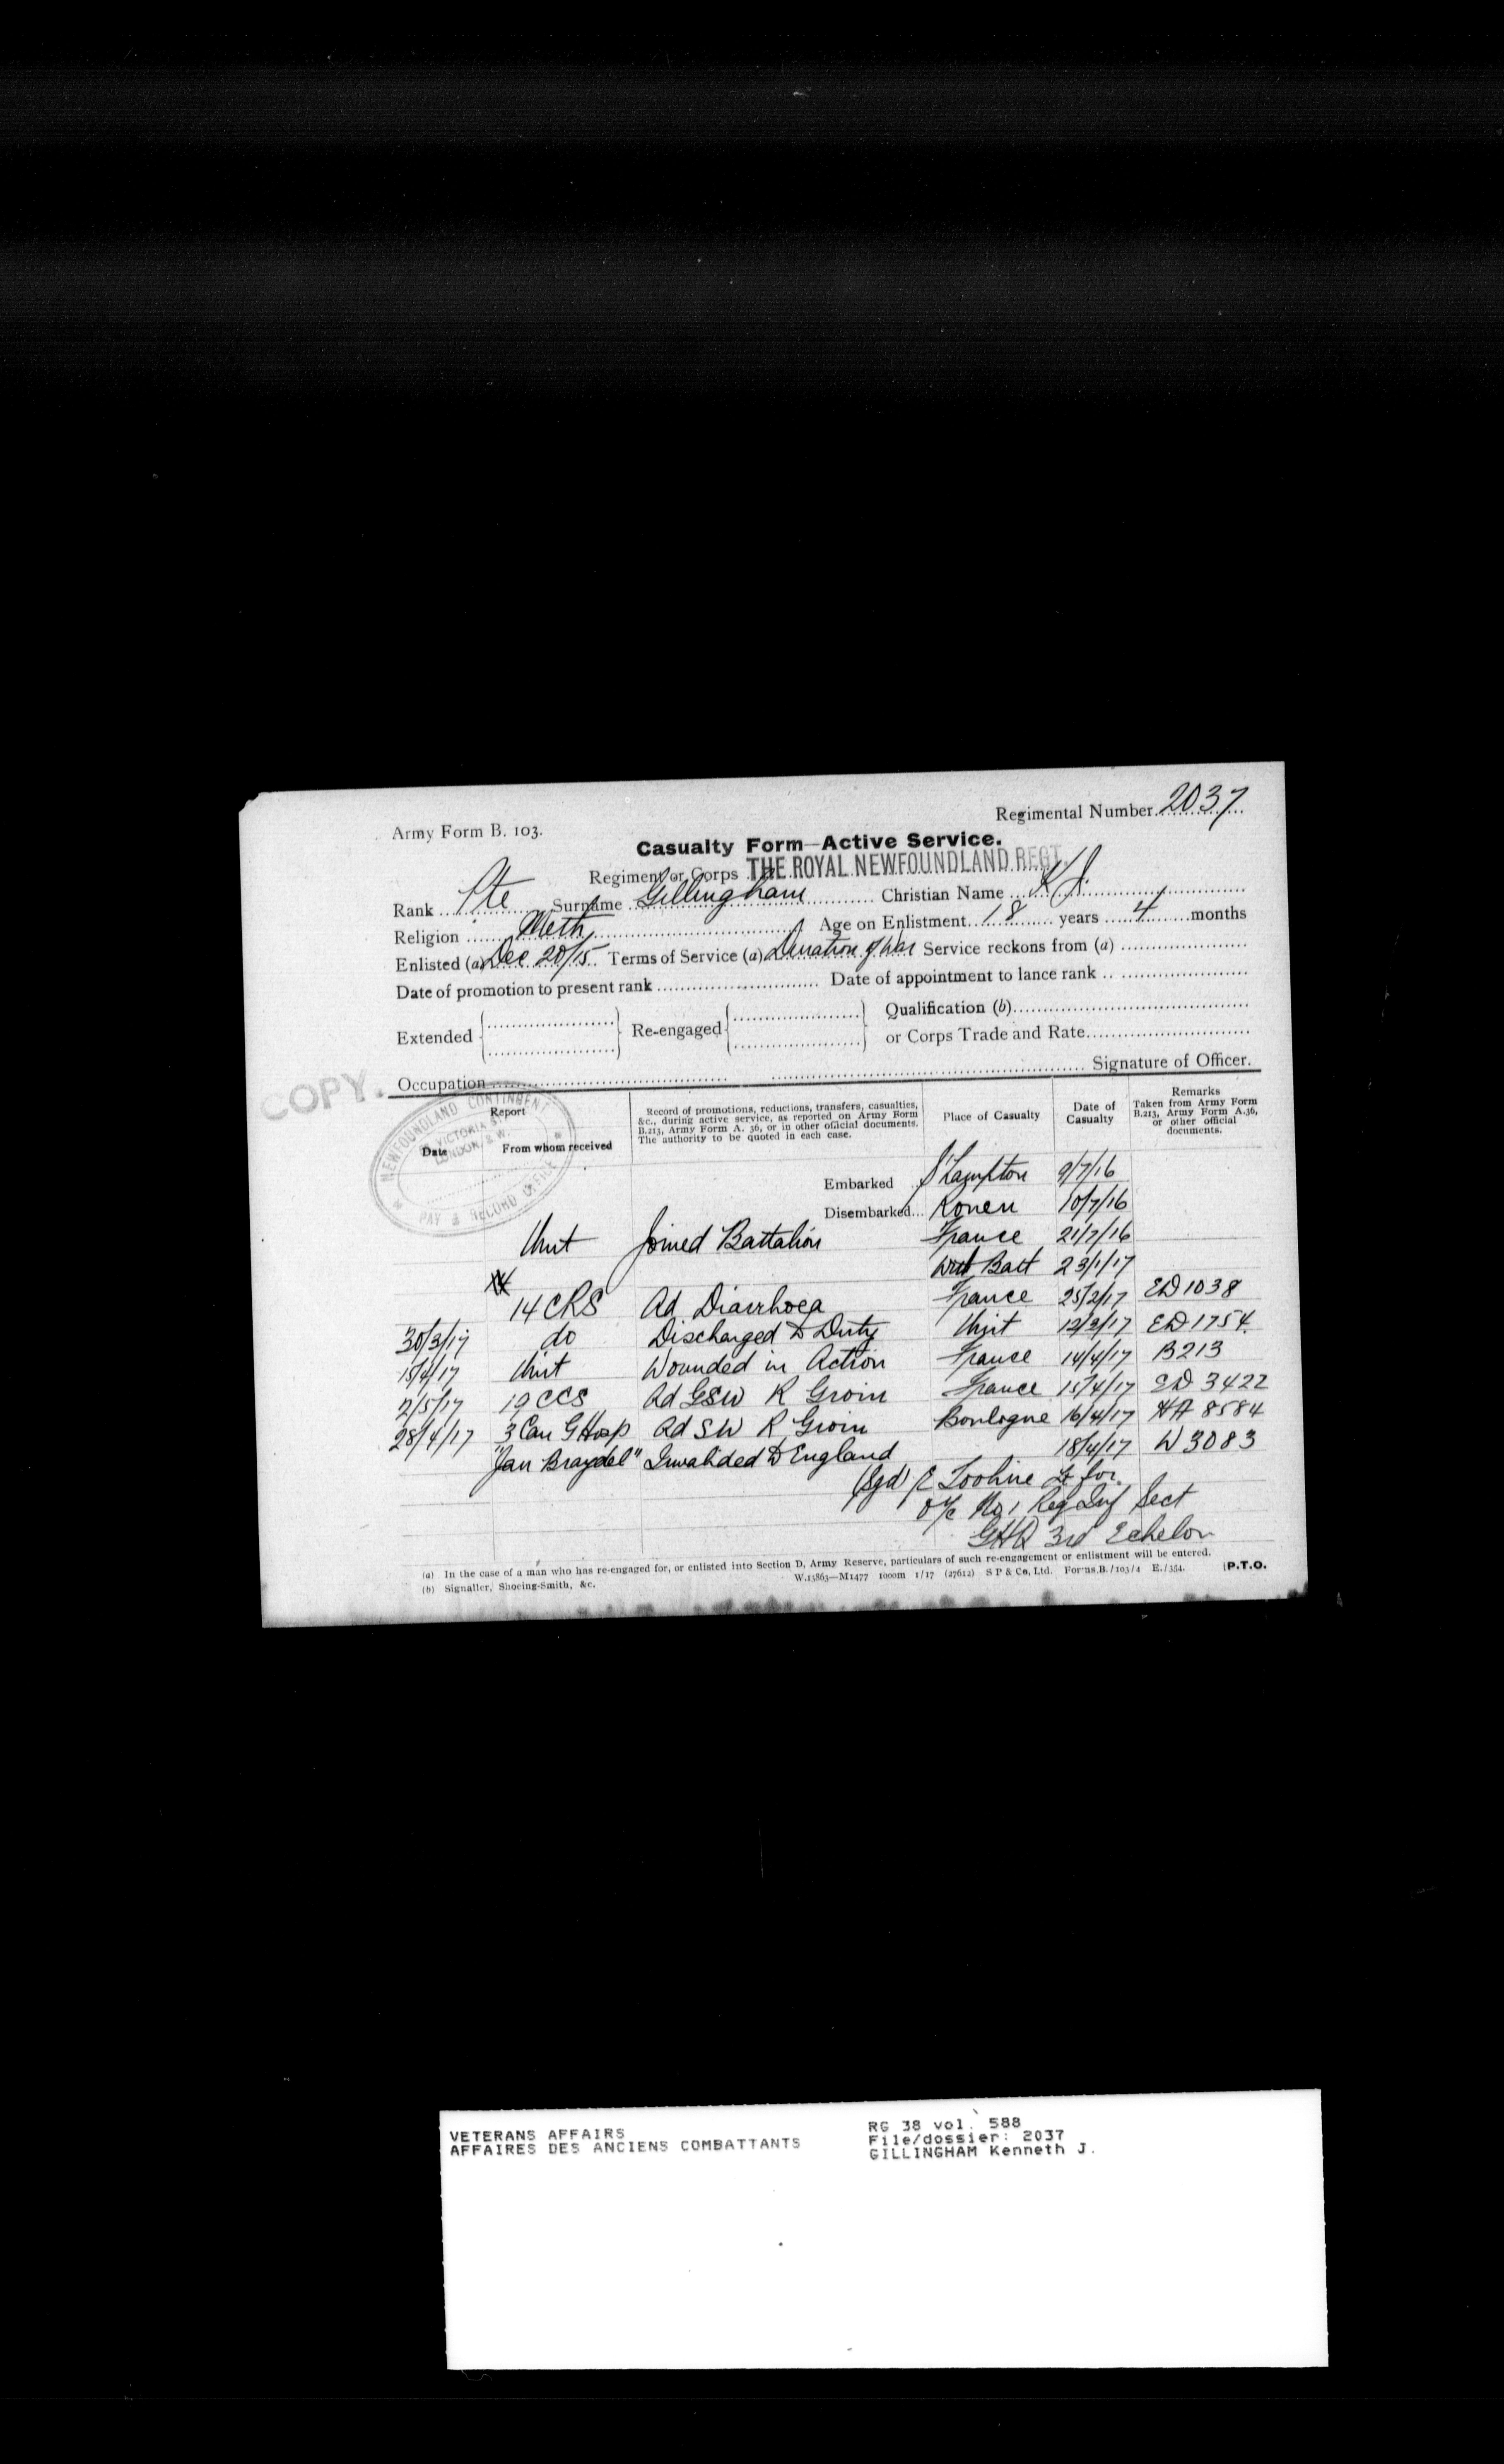 Regimental Number 2037
Army Form B. 103.
Casualty Form—Active Service.
Regiment or Corps THE ROYAL NEWFOUNDLAND REGT
Rank Pte Surname Gillingham Christian Name K J.
Religion Meth Age on Enlistment 18 years 4 months
Enlisted (a) Dec 20/15 Terms of Service (a) Duration of War Service reckons from (a)
Date of promotion to present rank Date of appointment to lance rank
Extended Re-engaged Qualification (b)
or Corps Trade and Rate
Signature of Officer.
Occupation
COPY.
NEWFOUNDLAND CONTINGENT
VICTORIA ST
LONDON, S.W.
PAY & RECORD OFFICE
Report
Date From whom received
Record of promotions, reductions, transfers, casualties,
&c., during active service, as reported on Army Form
B.213, Army Form A. 36, or in other official documents.
The authority to be quoted in each case.
Place of Casualty
Date of
Casualty
Remarks
Taken from Army Form
B.213, Army Form A.36,
or other official
documents.
Embarked S'Hampton 9/7/16
Disembarked... Rouen 10/7/16
Unit Joined Battalion France 21/7/16
Batt 23/1/17
14 CRS Ad Diarrhoea France 25/2/17 ED 1038
30/3/17 do Discharged to Duty Unit 12/3/17 ED 1754
15/4/17 Unit Wounded in Action France 14/4/17 B213
2/5/17 19 CCS Ad GSW R Groin France 15/4/17 ED 3422
28/4/17 3 Can G Hosp Ad SW R Groin Boulogne 16/4/17 HA 8584
"Jan Braydel" Invalided to England 18/4/17 W 3083
(Sgd) E Lt for
O/c No 1 Reg Inf Sect
GHQ 3rd Echelon
(a) In the case of a man who has re-engaged for, or enlisted into Section D, Army Reserve, particulars of such re-engagement or enlistment will be entered.
(b) Signaller, Shoeing-Smith, &c. W.15863—M1477 1000m 1/17 (27612) S P & Co, Ltd. Forms B./103/4 E./354. [P.T.O.
VETERANS AFFAIRS
AFFAIRES DES ANCIENS COMBATTANTS
RG 38 vol. 588
File/dossier: 2037
GILLINGHAM Kenneth J.